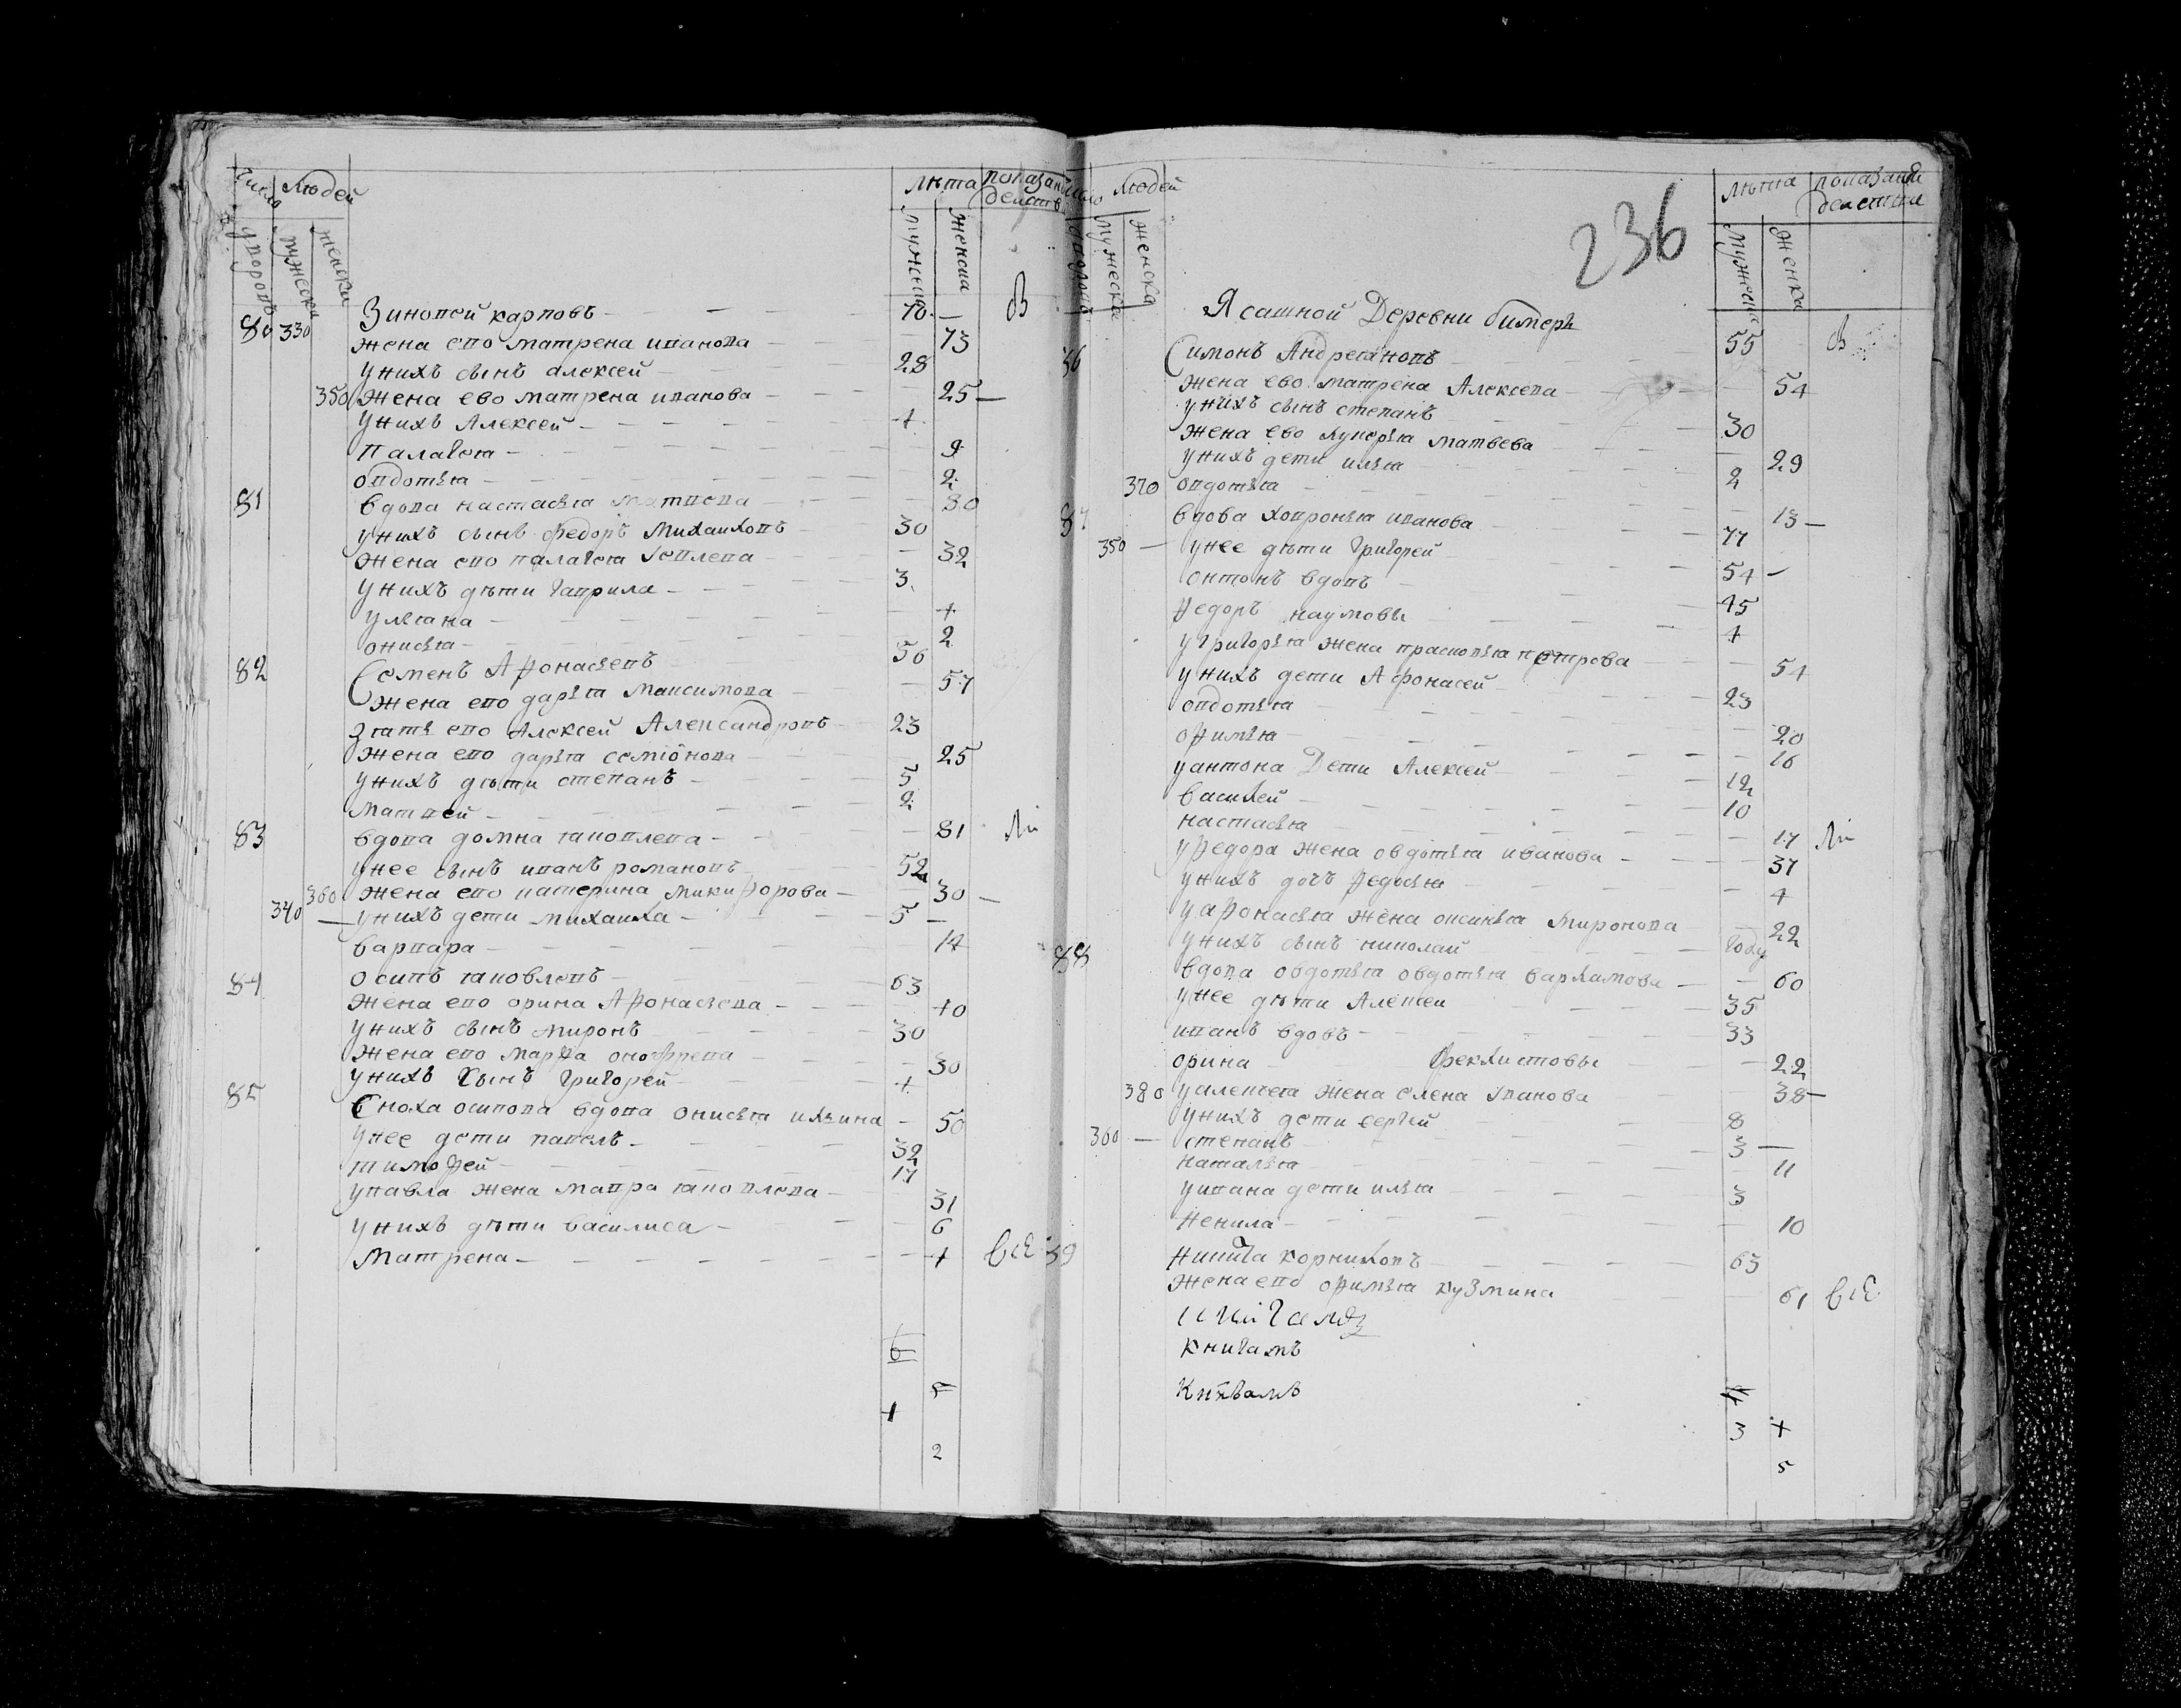 Число дворовъ людей мужеска женска лѣта мужеска женска показаніе действа
80 330 Зиновей карповъ 70 В
жена ево матрена иванова 73
у нихъ сынъ алексей 28
350 жена ево матрена иванова 25
у нихъ Алексей 4
Палагея 9
овдотья 2
81 вдова настасья матвева 80
у нихъ сынъ Федоръ Михаиловъ 30
жена ево палагея Iевлева 32
у нихъ дѣти гаврила 3
ульяна 4
онисья 2
82 Семенъ Афонасьевъ 56
жена ево дарья Максимова 57
зять ево Алексей Александровъ 23
жена ево дарья семіонова 25
у нихъ дѣти степанъ 5
Матвей 2
83 вдова домна яковлева 81 Ли
у нее сынъ иванъ романовъ 52
360 жена ево катерина Микифорова 30
340 у нихъ дети михаила 5
варвара 14
84 осипъ яковлевъ 63
жена ево орина Афонасьева 40
у нихъ сынъ миронъ 30
жена ево марфа онофрева 30
у нихъ сынъ григорей 4
85 Сноха осипова вдова онисья ильина 50
у нее дети павелъ 32
тимофей 17
у павла жена мавра яковлева 31
у нихъ дѣти василиса 6
матрена 4
6
4
2
людей мужеска женска лѣта мужеска женска показаніе действия
236
Ясашной Деревни бимерь
86 Симонъ Андреяновъ 55 В
жена ево матрена Алексева 54
у нихъ сынъ степанъ 30
жена ево лукерья матвева 29
у нихъ дети илья 2
370 овдотья 13
87 вдова ховронья иванова 77
350 у нее дѣти григорей 54
онтонъ вдовъ 45
федоръ наумовы 4
у григорья жена прасковья петрова 54
у нихъ дети Афонасей 23
овдотья 20
офимья 16
у антона Дети Алексей 12
василей 10
настасья 17 Ли
у федора жена овдотья иванова 37
у нихъ дочь федосья 4
у афонасья жена оксинья Миронова 22
у нихъ сынъ николай году
88 вдова овдотья овдотья варламова 60
у нее дѣти Алексеи 35
иванъ вдовъ 33
орина Феклистовы 22
380 у алексея жена елена Iванова 38
у нихъ дети сергей 8
360 степанъ 3
наталья 11
у ивана дети илья 3
Ненила 10
89 никита корниловъ 63
жена ево офимья кузмина 61
книгамъ
4
3 4
5